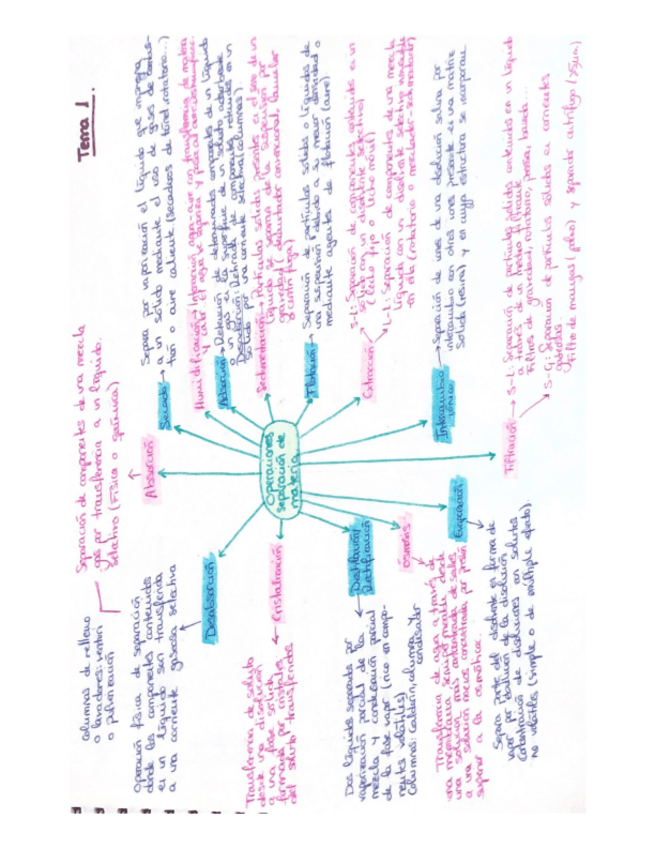 Tema 1.
Operaciones
separación de
materia
Secado → Separa por vaporización el líquido que impregna
a un sólido mediante el uso de gases de combus-
tión o aire caliente (secaderos de túnel, rotatorio...)
Humidificación → Interacción agua-aire con transferencia de materia
y calor. El agua se vaporiza y pasa al aire
Adsorción → Retención de determinados componentes de un líquido
o un gas en la superficie de un sólido adsorbente
Desadsorción: retirada de componentes retenidos en un
sólido por una corriente selectiva (columnas).
Sedimentación → Partículas sólidas presentes en el seno de un
líquido se separan de la suspensión por
gravedad (decantador convencional, lamelar
o centrífuga)
Flotación → Separación de partículas sólidas o líquidas de
una suspensión debido a su menor densidad o
mediante agentes de flotación (aire)
Extracción
S-L: Separación de componentes contenidos en un
sólido con un disolvente selectivo
(lecho fijo o lecho móvil)
L-L: Separación de componentes de una mezcla
líquida con un disolvente selectivo inmiscible
en ella (rotatorio o mezclador-sedimentador)
Intercambio
iónico
→ Separación de iones de una disolución salina por
intercambio con otros iones presente en una matriz
sólida (resina) y en cuya estructura se incorporan
Filtración → S-L: Separación de partículas sólidas contenidas en un líquido
a través de un medio filtrante
Filtros de gravedad, rotatorio, prensa, banda...
S-G: Separación de partículas sólidas en corrientes
gaseosas.
Filtro de mangas (polvo) y separador centrífugo
Absorción
Separación de componentes de una mezcla
gas por transferencia a un líquido
selectivo (Física o química)
Columnas de relleno
o lavadores: venturi
o pulverización
Desabsorción
Operación física de separación
donde los componentes contenidos
en un líquido son transferida
a una corriente gaseosa selectiva
Cristalización
Transferencia de soluto
desde una disolución
a una fase sólida
formada por cristales
del soluto transferido
Destilación/
Rectificación
Dos líquidos separados por
vaporización parcial de la
mezcla y condensación parcial
de la fase vapor (rico en compo-
nentes volátiles)
Columnas: Calderín, columna y
condensador
Osmosis
Transferencia de agua a través de
una membrana semipermeable desde
una solución más concentrada de sales
a una solución menos concentrada por presión
superior a la osmótica.
Evaporación
Separa parte del disolvente en forma de
vapor por ebullición de la disolución
Concentración de disoluciones con solutos
no volátiles (simple o de múltiple efecto).